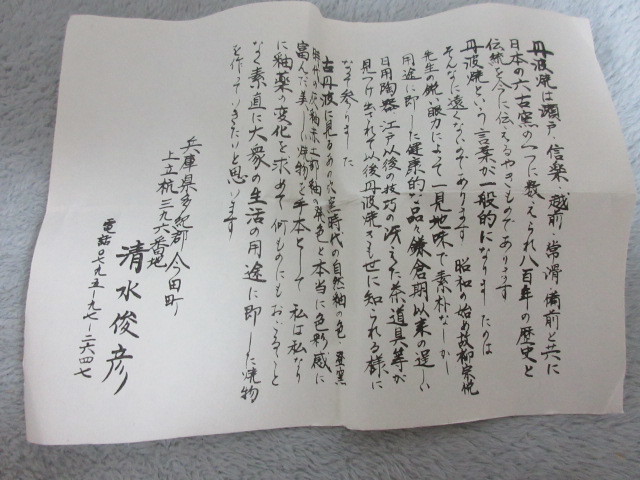 丹波焼は瀬戸・信楽・越前・常滑・備前と共に
日本の六古窯の一つに数えられ八百年の歴史と
伝統を今に伝えるやきものであります
丹波焼という言葉が一般的になりましたのは
そんなに遠くないでであります 昭和の始め故柳宗悦
先生の鋭い眼力によって一見地味で素朴なしかし
用途に即した健康的な品々鎌倉期以来の逞しい
日用陶器・江戸以後の技巧の冴えた茶道具等が
見つけ出されて以後丹波焼きも世に知られる様に
なって参りました
古丹波に見るあの穴窯時代の自然釉の色 登窯
時代の灰釉赤土部釉の発色と本当に色彩感に
富んだ美しい焼物を手本として 私は私なり
に釉薬の変化を求めて何ものにもおごること
なく素直に大衆の生活の用途に即した焼物
を作っていきたいと思います
兵庫県多紀郡今田町
上立杭三九六番地
清水俊彦
電話〇七九五-九七-二六四七